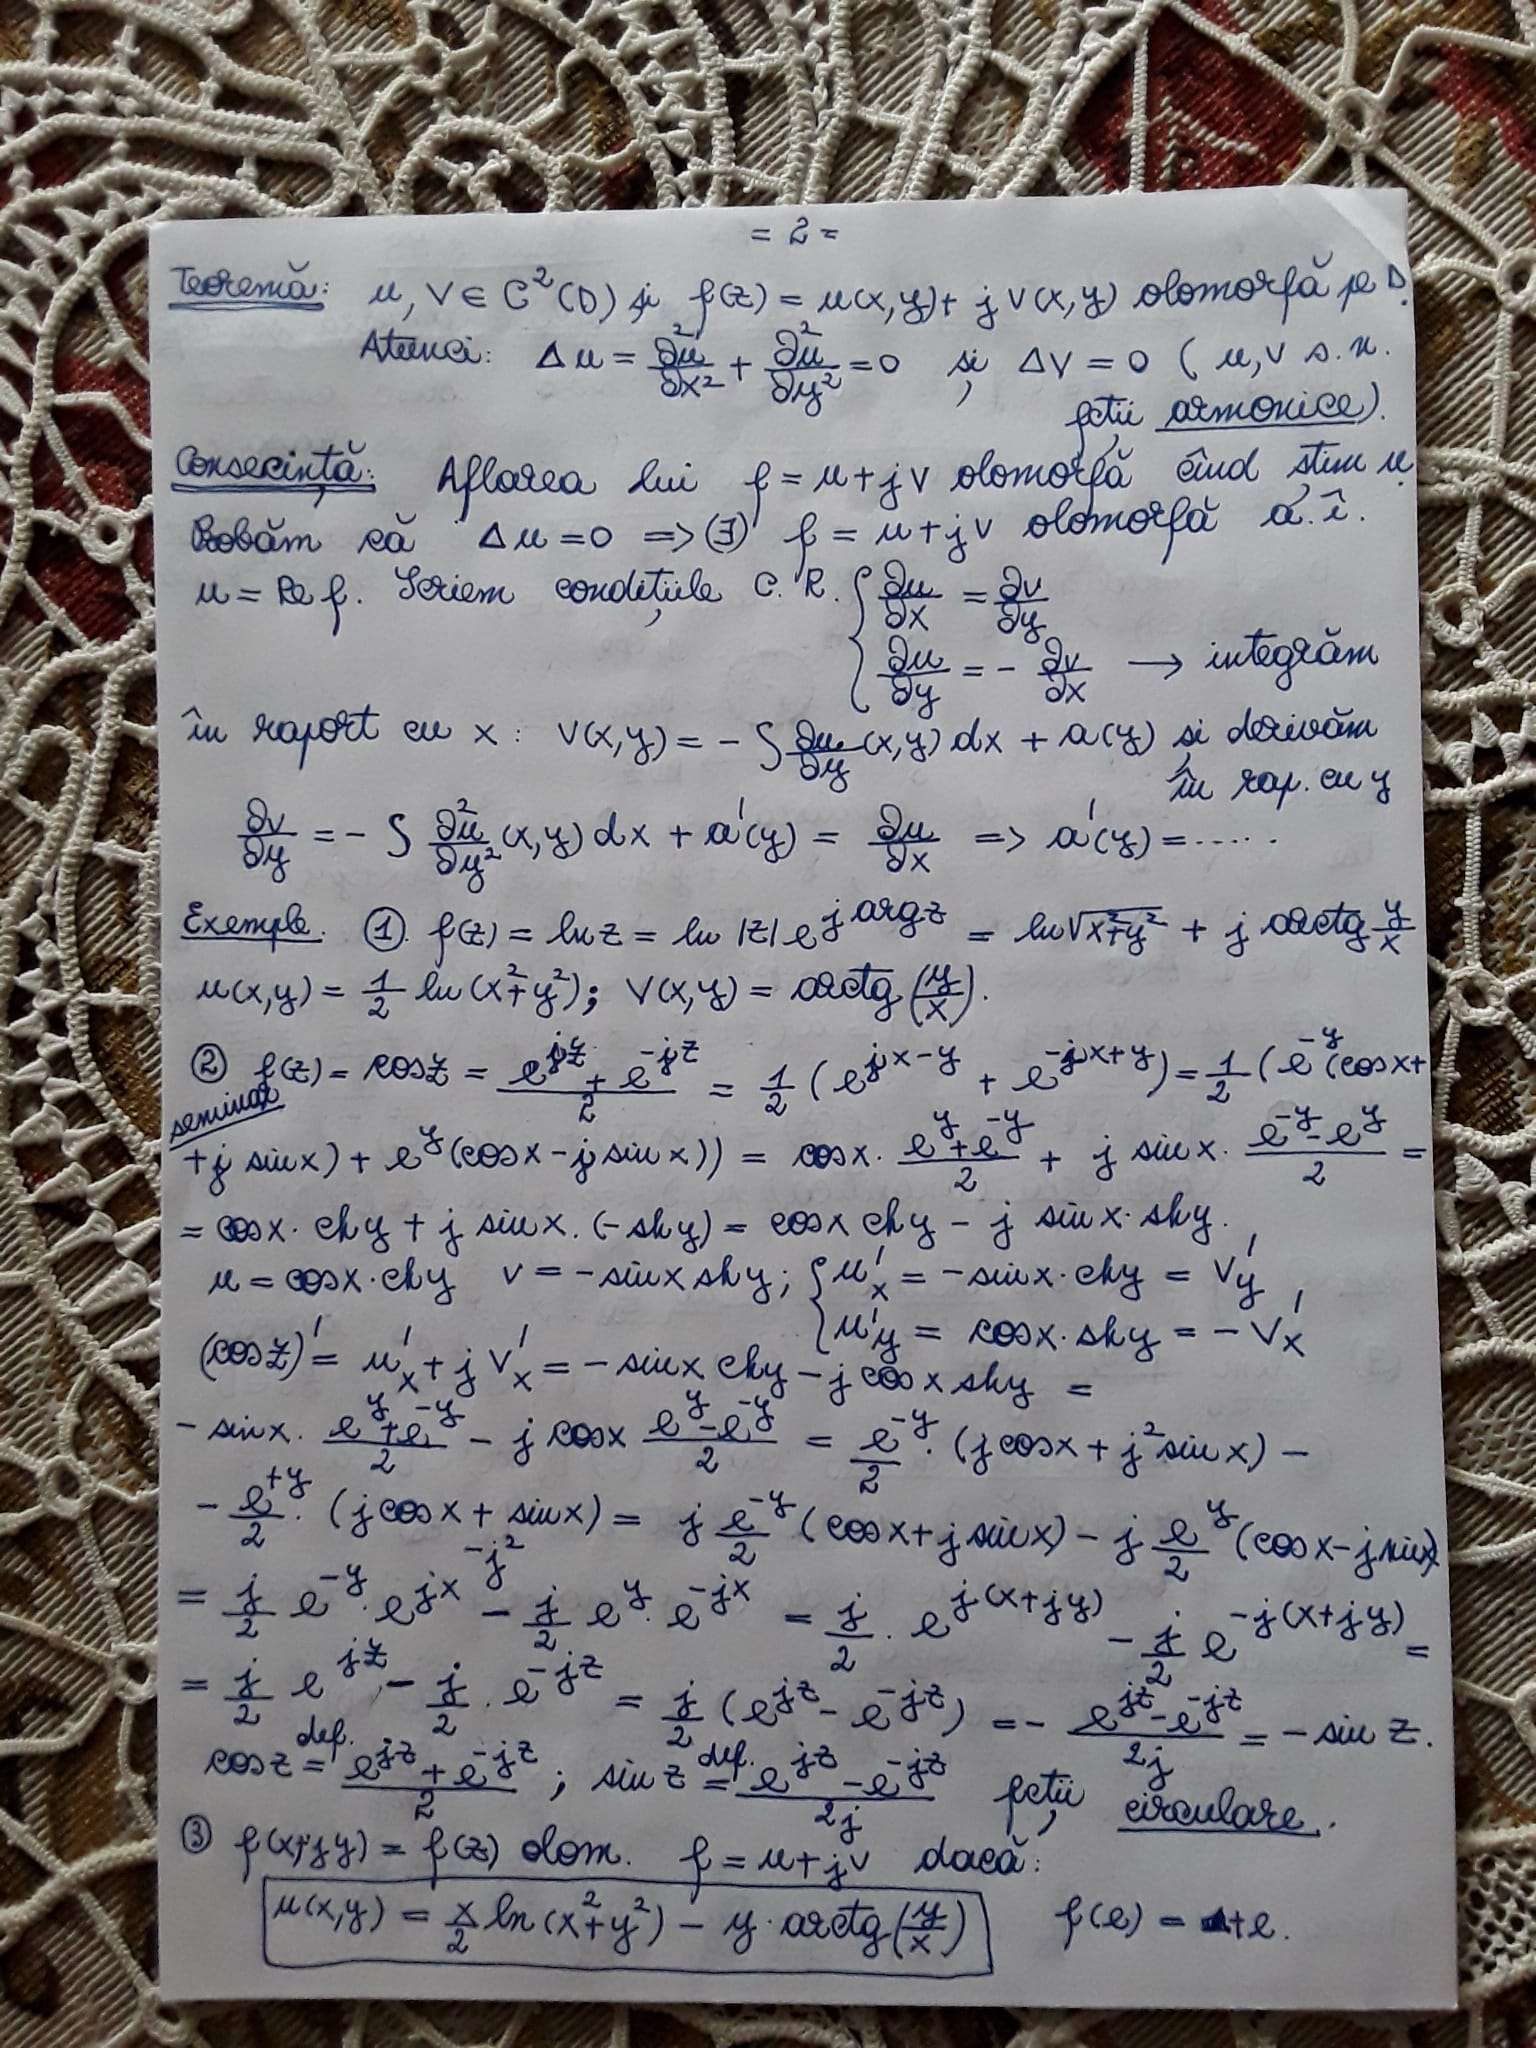 = 2 =
Teoremă: u, v ∈ C²(D) și f(z) = u(x,y) + j v(x,y) olomorfă pe D.
Atunci: Δu = ∂²u/∂x² + ∂²u/∂y² = 0 și Δv = 0 (u,v s.n.
fcții armonice).
Consecință: Aflarea lui f = u + jv olomorfă cînd știm u
Probăm că Δu = 0 => (∃) f = u + jv olomorfă a.î.
u = Re f. Scriem condițiile C.R. { ∂u/∂x = ∂v/∂y
∂u/∂y = - ∂v/∂x → integrăm
în raport cu x: v(x,y) = - ∫ ∂u/∂y (x,y) dx + a(y) și derivăm
în rap. cu y
∂v/∂y = - ∫ ∂²u/∂y² (x,y) dx + a'(y) = ∂u/∂x => a'(y) = .....
Exemple. ① f(z) = ln z = ln |z| e^{j arg z} = ln √(x²+y²) + j arctg y/x
u(x,y) = 1/2 ln(x²+y²); v(x,y) = arctg(y/x).
② f(z) = cos z = (e^{jz} + e^{-jz})/2 = 1/2 (e^{jx-y} + e^{-jx+y}) = 1/2 (e^{-y}(cos x +
seminar
+ j sin x) + e^y (cos x - j sin x)) = cos x · (e^y + e^{-y})/2 + j sin x · (e^{-y} - e^y)/2 =
= cos x · ch y + j sin x · (-sh y) = cos x ch y - j sin x · sh y.
u = cos x · ch y v = - sin x sh y; { u'x = - sin x · ch y = v'y
u'y = cos x · sh y = - v'x
(cos z)' = u'x + j v'x = - sin x ch y - j cos x sh y =
- sin x · (e^y + e^{-y})/2 - j cos x (e^y - e^{-y})/2 = e^{-y}/2 · (j cos x + j² sin x) -
- e^{+y}/2 · (j cos x + sin x) = j e^{-y}/2 (cos x + j sin x) - j e^y/2 (cos x - j sin x)
-j²
= j/2 e^{-y} · e^{jx} - j/2 e^y · e^{-jx} = j/2 · e^{j(x+jy)} - j/2 e^{-j(x+jy)} =
= j/2 e^{jz} - j/2 · e^{-jz} = j/2 (e^{jz} - e^{-jz}) = - (e^{jz} - e^{-jz})/2j = - sin z.
cos z def.= (e^{jz} + e^{-jz})/2 ; sin z def.= (e^{jz} - e^{-jz})/2j fcții circulare.
③ f(x+jy) = f(z) olom. f = u + jv dacă:
u(x,y) = x/2 ln(x²+y²) - y · arctg(y/x) f(e) = +e.